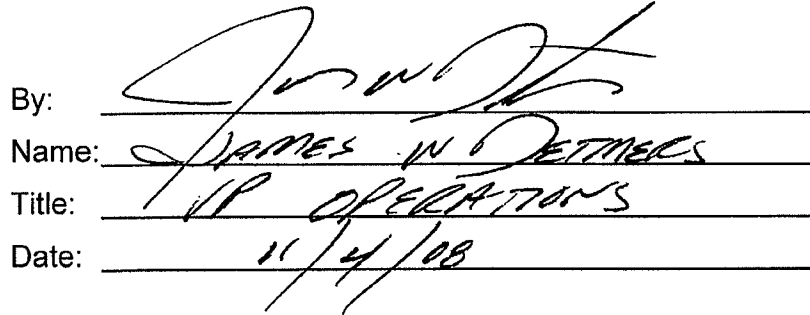 By:
Name: JAMES W DETMERS
Title: VP OPERATIONS
Date: 11/4/08